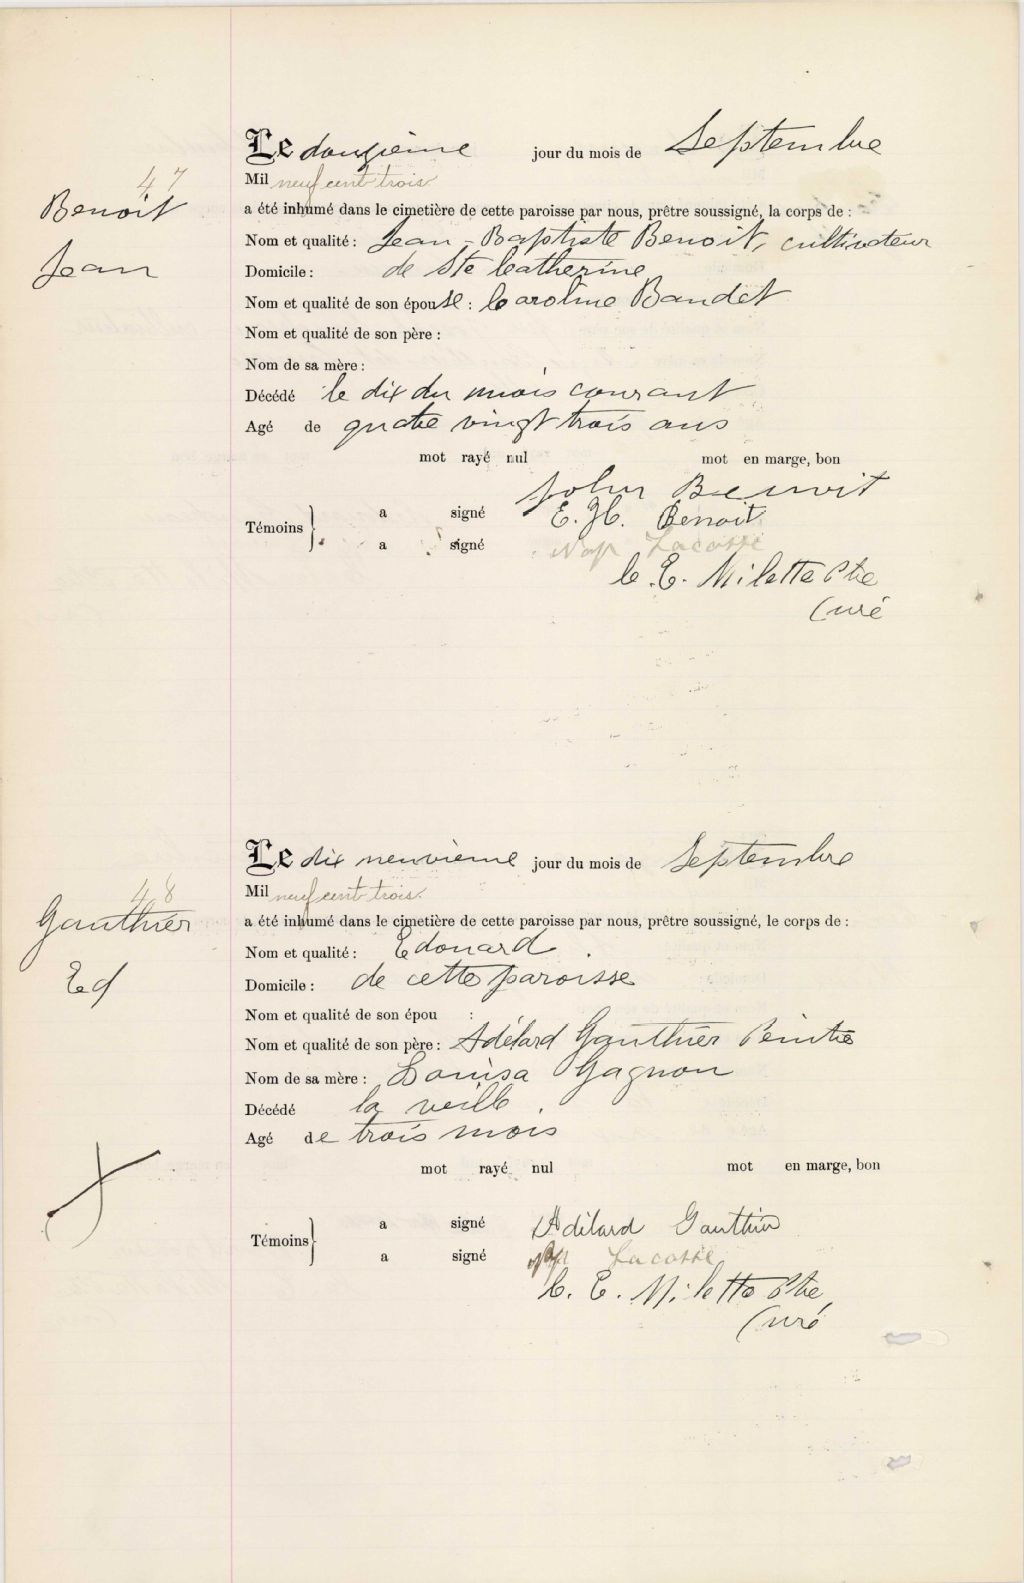 Le douzième jour du mois de Septembre
47
Mil neuf cent trois
Benoit
a été inhumé dans le cimetière de cette paroisse par nous, prêtre soussigné, la corps de :
Nom et qualité : Jean-Baptiste Benoit, cultivateur
Jean
Domicile : de Ste Catherine
Nom et qualité de son épouse : Caroline Baudet
Nom et qualité de son père :
Nom de sa mère :
Décédé le dix du mois courant
Agé de quatre vingt trois ans
mot rayé nul mot en marge, bon
John Benoit
Témoins a signé E. H. Benoit
a signé Nap Lacosse
C. E. Milette Ptre
Curé
Le dix neuvième jour du mois de Septembre
48
Mil neuf cent trois
Gauthier
a été inhumé dans le cimetière de cette paroisse par nous, prêtre soussigné, le corps de :
Nom et qualité : Edouard
Ed
Domicile : de cette paroisse
Nom et qualité de son épou :
Nom et qualité de son père : Adélard Gauthier Peintre
Nom de sa mère : Louisa Gagnon
Décédé la veille.
Agé de trois mois
mot rayé nul mot en marge, bon
Témoins a signé Adélard Gauthier
a signé Nap Lacosse
C. E. Milette Ptre
Curé